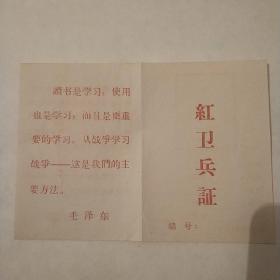 讀书是学习，使用
也是学习，而且是更重
要的学习。从战爭学习
战爭——这是我們的主
要方法。
毛泽东
紅卫兵証
编号：